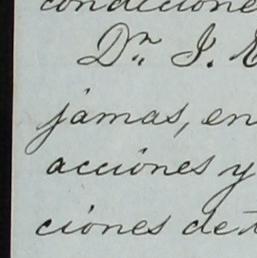 condicione
Dr. J. E
jamas, en
acciónes y
ciónes de